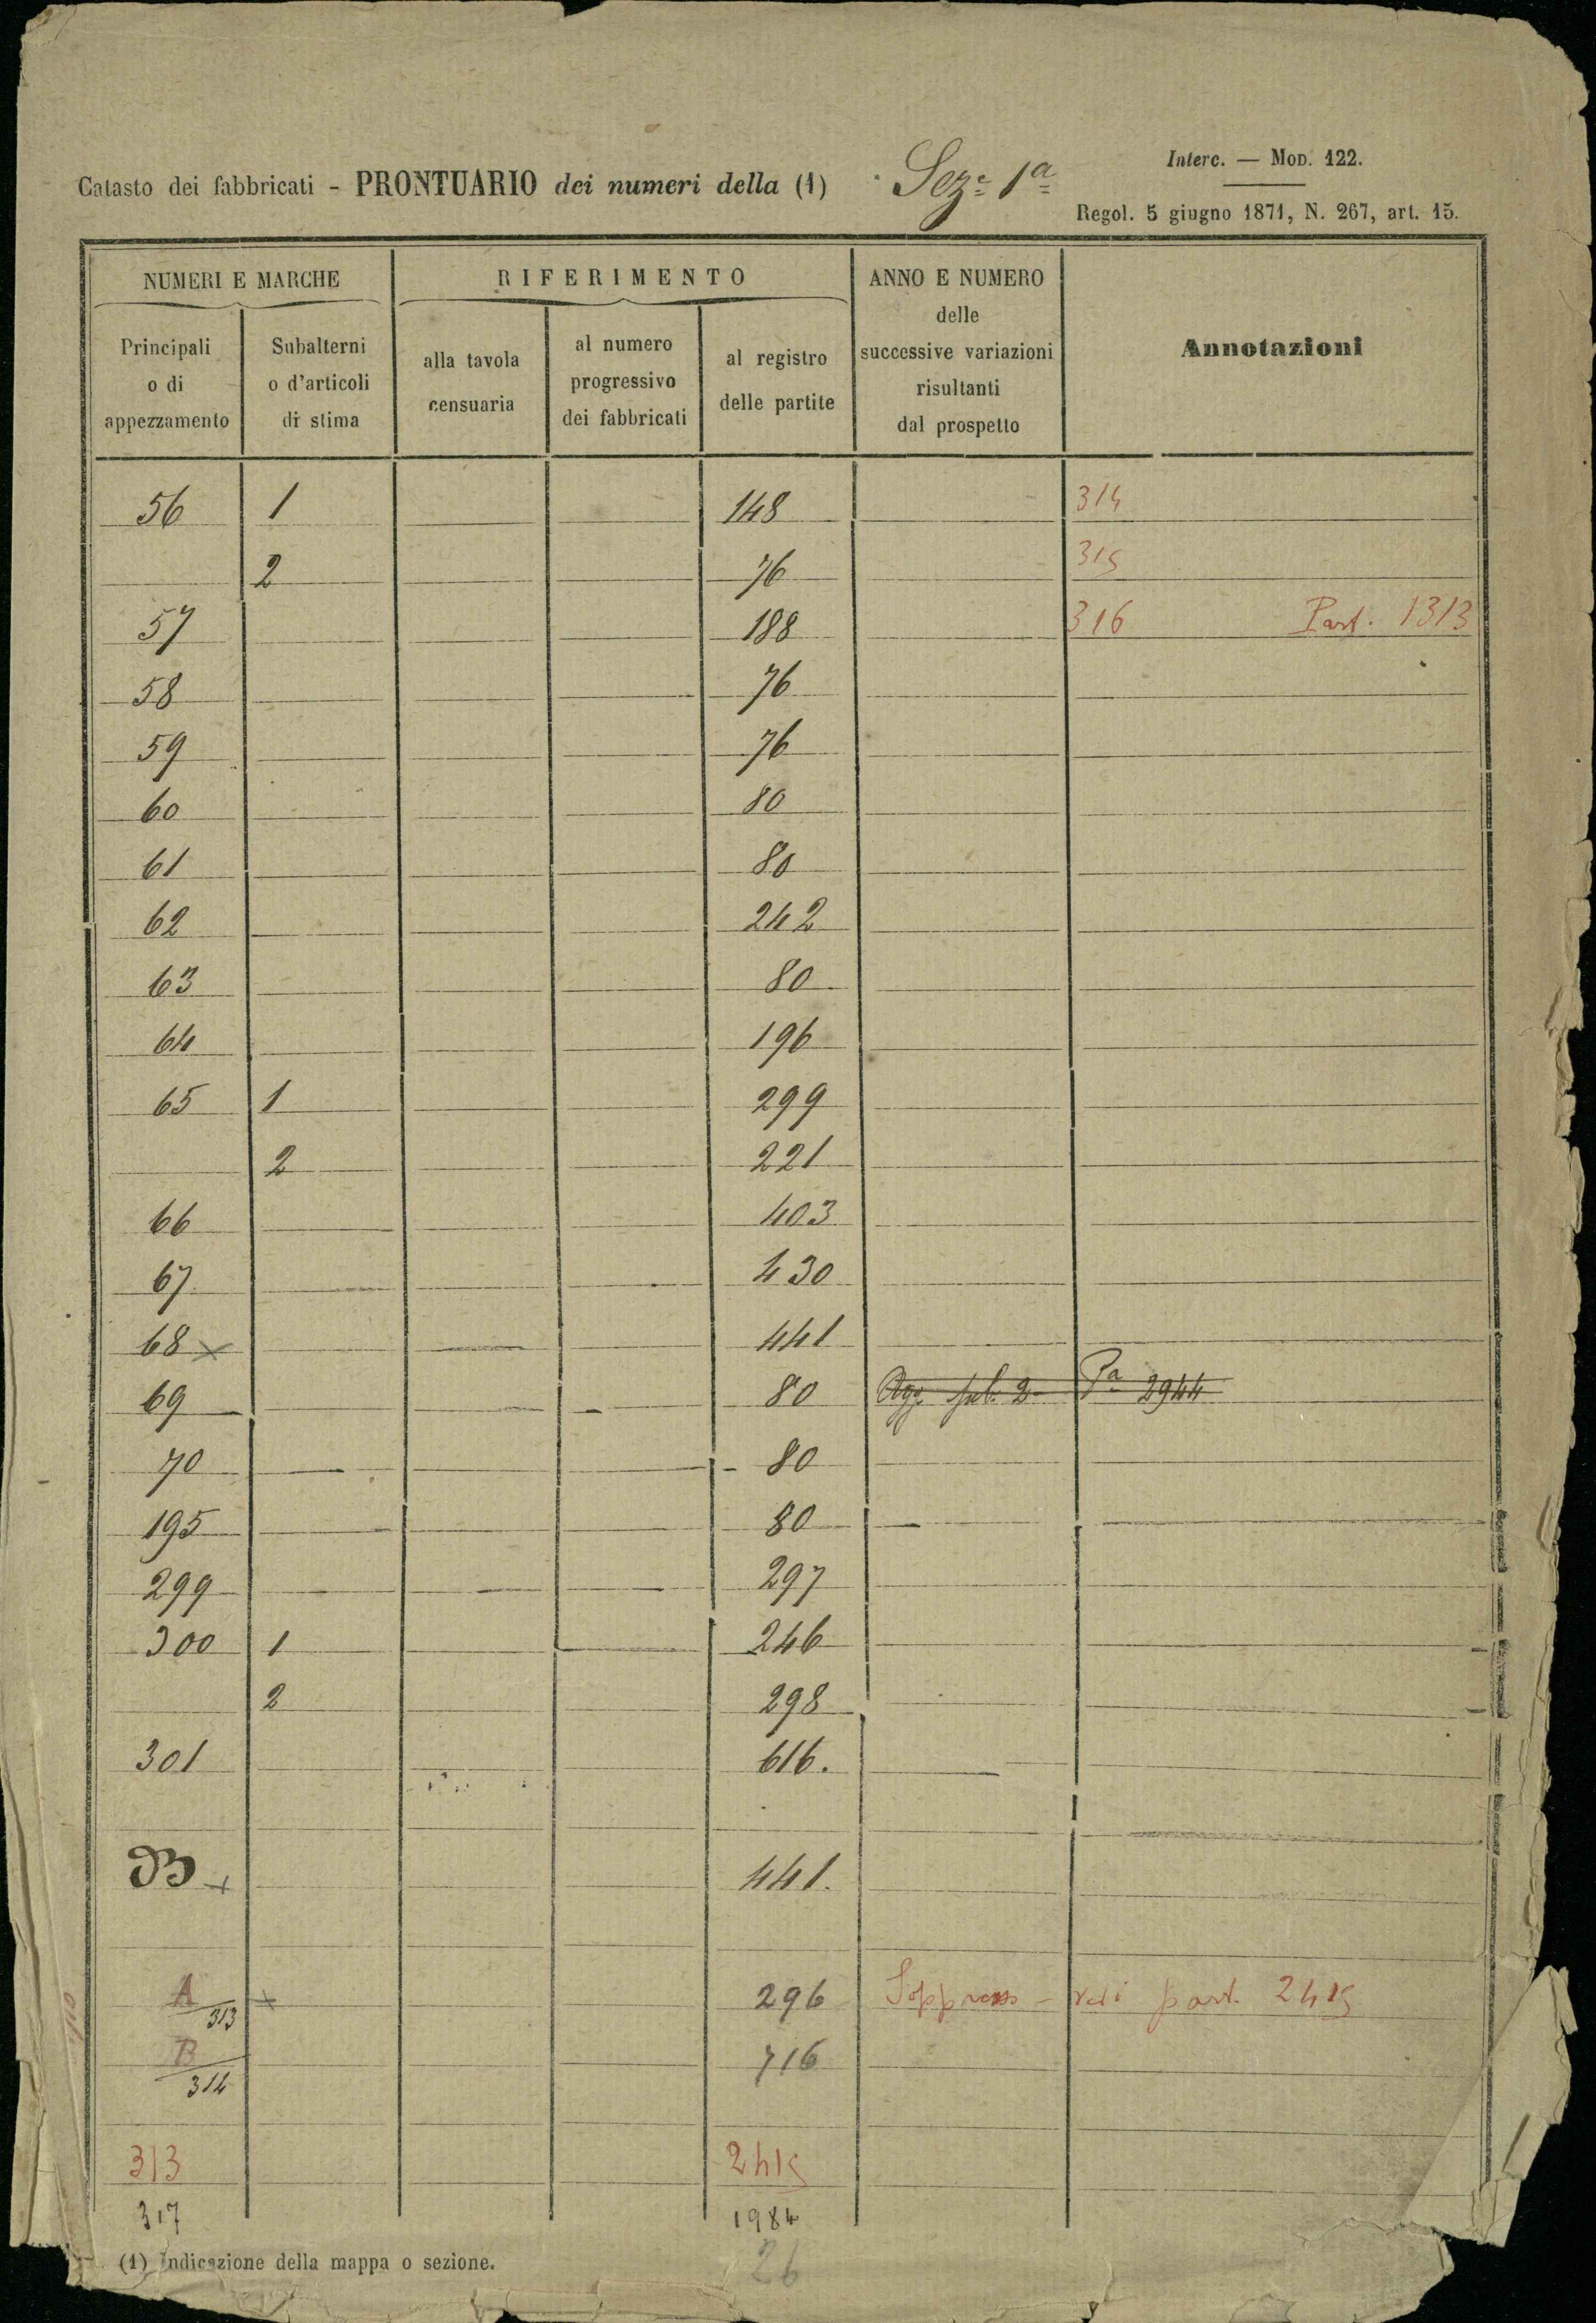 Interc. — Mod. 122.
Catasto dei fabbricati - PRONTUARIO dei numeri della (1) Sez.e 1a
Regol. 5 giugno 1871, N. 267, art. 15.
NUMERI E MARCHE
RIFERIMENTO
ANNO E NUMERO
delle
successive variazioni
risultanti
dal prospetto
Annotazioni
Principali
o di
appezzamento
Subalterni
o d'articoli
di stima
alla tavola
censuaria
al numero
progressivo
dei fabbricati
al registro
delle partite
56 1 148 314
2 76 315
57 188 316 Part. 1313
58 76
59 76
60 80
61 80
62 242
63 80
64 196
65 1 299
2 221
66 403
67 430
68 x 441
69 80 Agg. sub. 2 Pa 2944
70 80
195 80
299 297
300 1 246
2 298
301 616.
B + 441.
A 313 + 296 Soppresso - vedi part. 2415
B 314 716
313 2415
317 1984
(1) Indicazione della mappa o sezione.
26